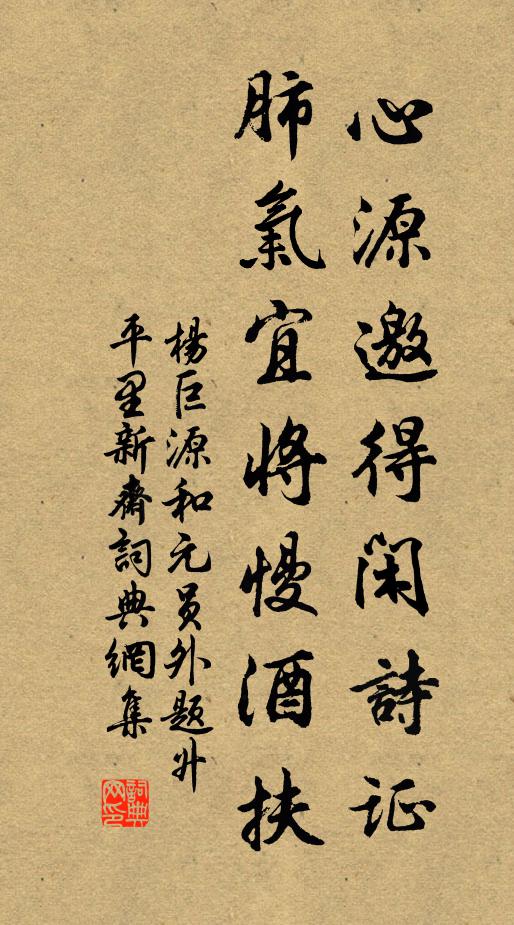 心源邀得闲詩证
肺氣宜将慢酒扶
楊巨源和元员外题升
平里新齋詞典網集
詞典
网印